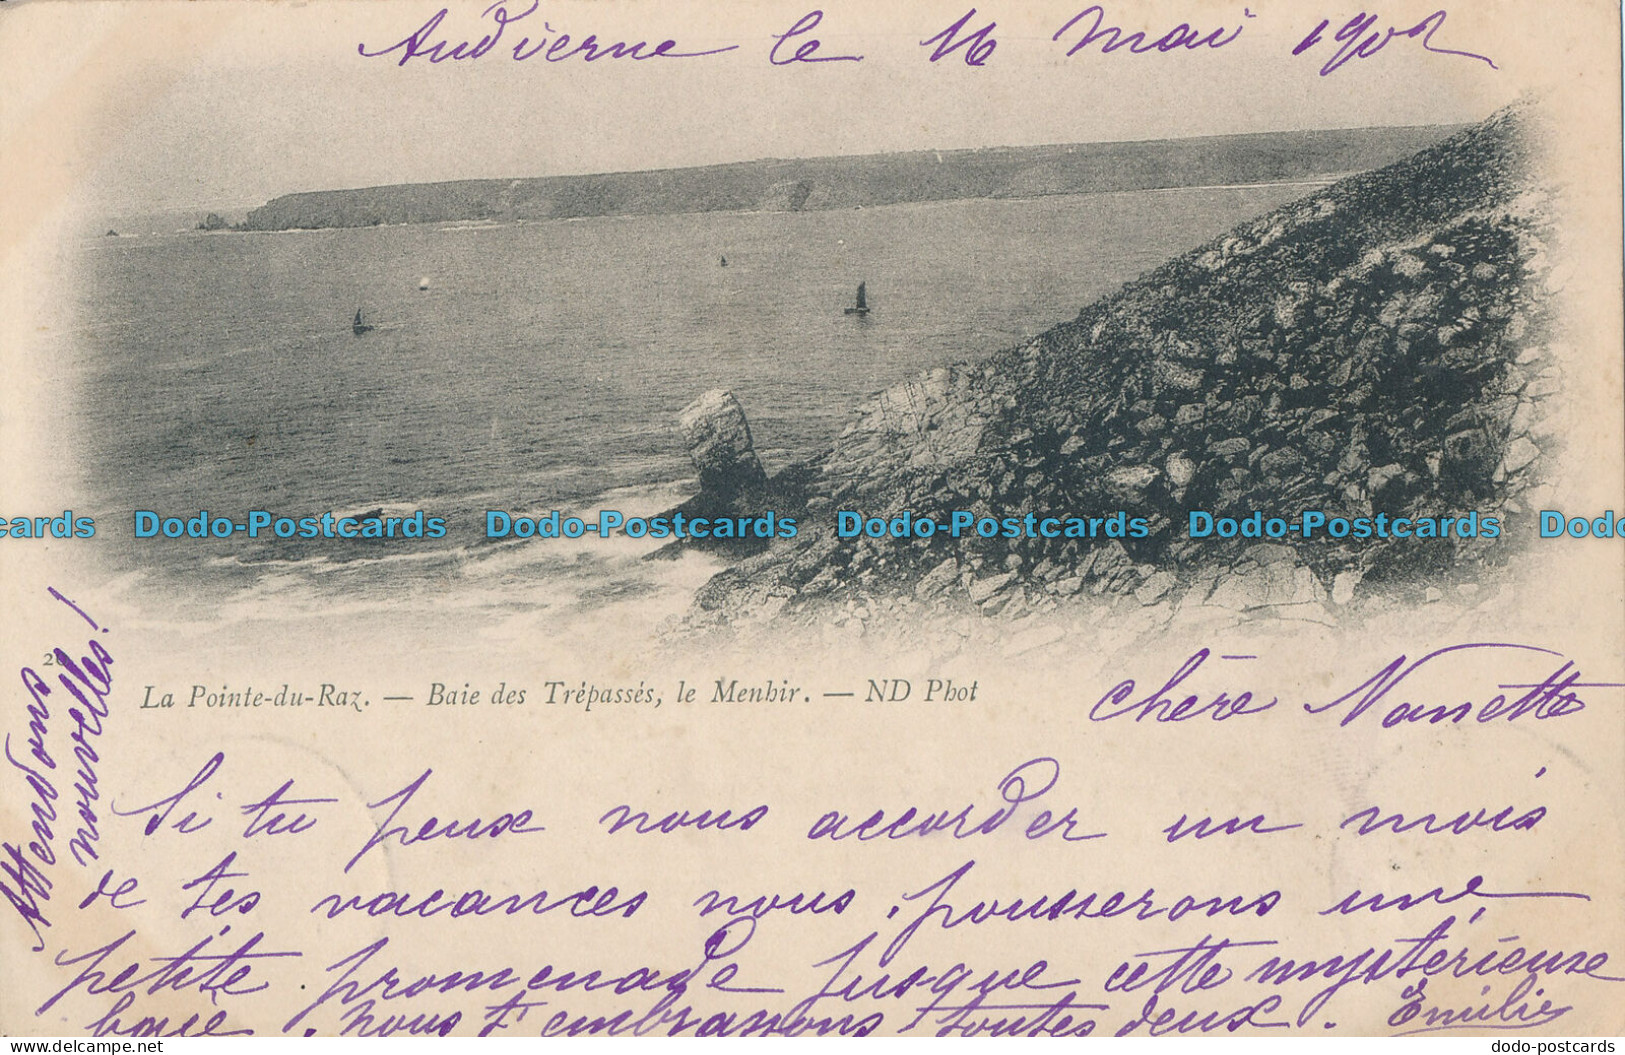 Audierne le 16 mai 1902
Dodo-Postcards Dodo-Postcards Dodo-Postcards Dodo-Postcards
La Pointe-du-Raz. — Baie des Trépassés, le Menhir. — ND Phot
chère Nanette
Si tu peux nous accorder un mois
de tes vacances nous pousserons une
petite promenade jusque cette mystérieuse
baie. nous t'embrassons toutes deux. Emilie
Attendons
nouvelles!
dodo-postcards.com